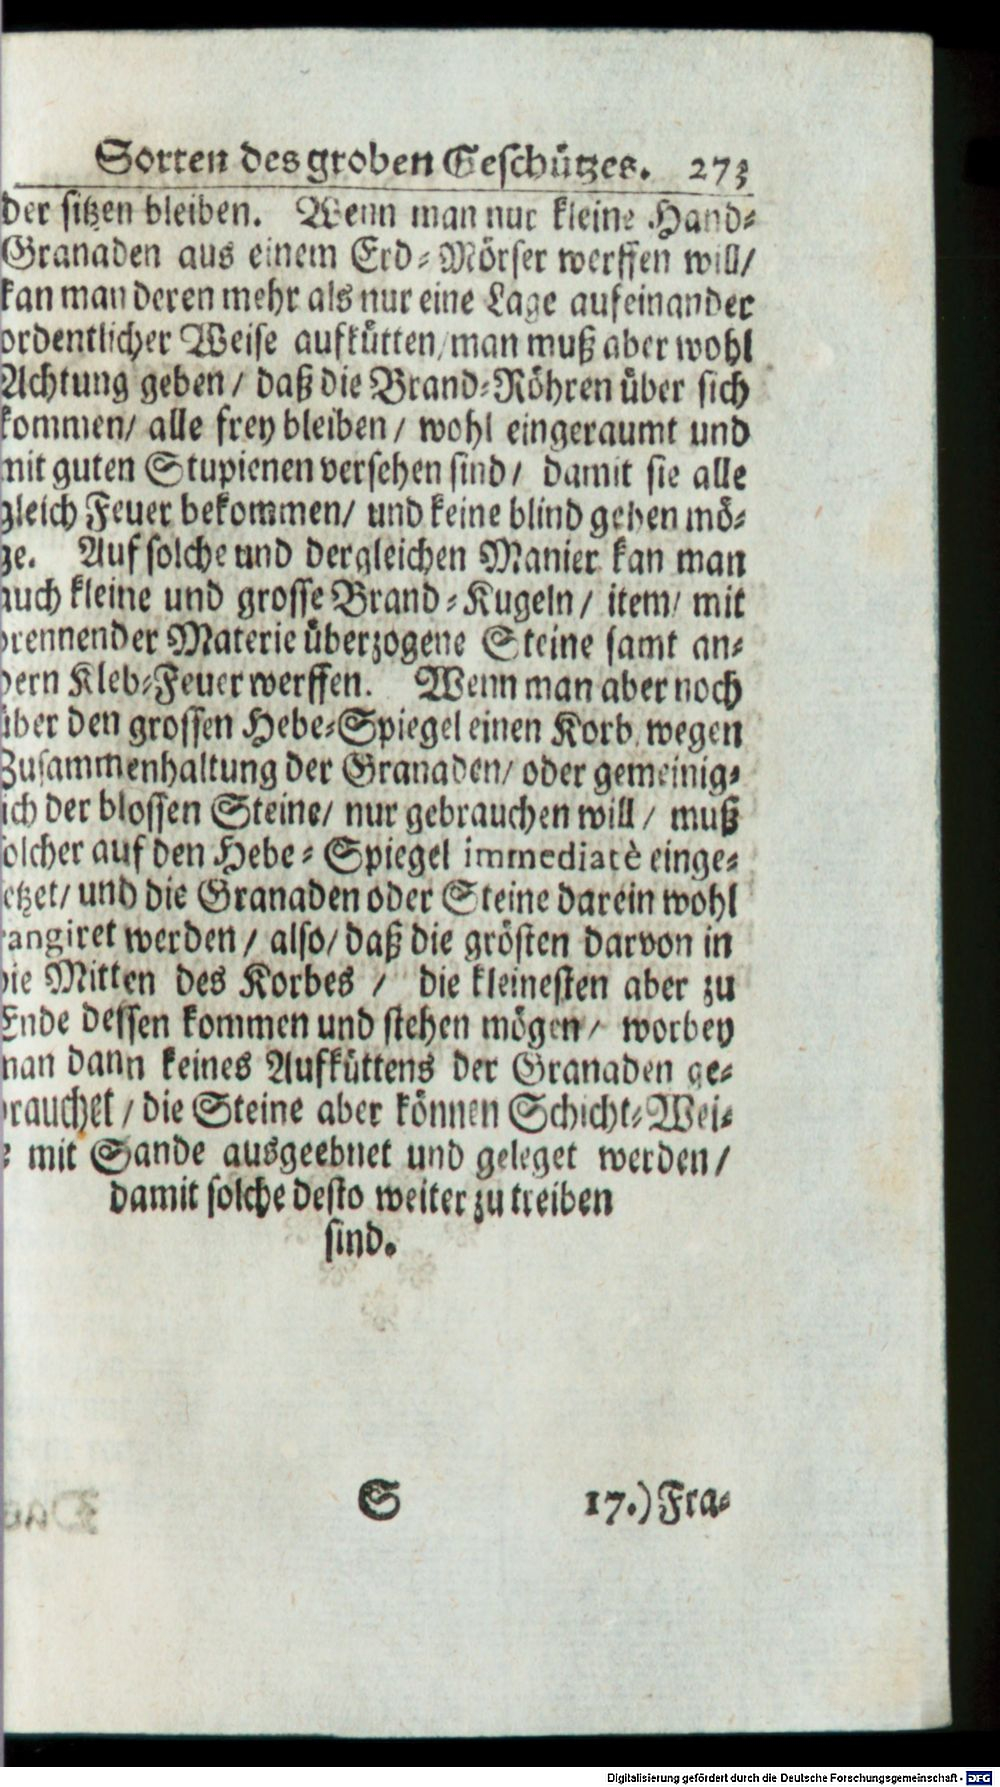 Sorten des groben Geschützes. 273
der sitzen bleiben. Wenn man nur kleine Hand-
Granaden aus einem Erd-Mörser werffen will/
kan man deren mehr als nur eine Lage aufeinander
ordentlicher Weise aufkütten/man muß aber wohl
Achtung geben/ daß die Brand-Röhren über sich
kommen/ alle frey bleiben/ wohl eingeraumt und
mit guten Stupienen versehen sind/ damit sie alle
gleich Feuer bekommen/ und keine blind gehen mö-
ge. Auf solche und dergleichen Manier kan man
auch kleine und grosse Brand-Kugeln/ item/ mit
brennender Materie überzogene Steine samt an-
dern Kleb-Feuer werffen. Wenn man aber noch
über den grossen Hebe-Spiegel einen Korb, wegen
Zusammenhaltung der Granaden/ oder gemeinig-
ich der blossen Steine/ nur gebrauchen will/ muß
solcher auf den Hebe-Spiegel immediatè einge-
etzet/ und die Granaden oder Steine darein wohl
rangiret werden/ also/ daß die grösten darvon in
die Mitten des Korbes / die kleinesten aber zu
Ende dessen kommen und stehen mögen/ worbey
man dann keines Aufküttens der Granaden ge-
brauchet/ die Steine aber können Schicht-Wei-
e mit Sande ausgeebnet und geleget werden/
damit solche desto weiter zu treiben
sind.
S 17.) Fra-
Digitalisierung gefördert durch die Deutsche Forschungsgemeinschaft - DFG